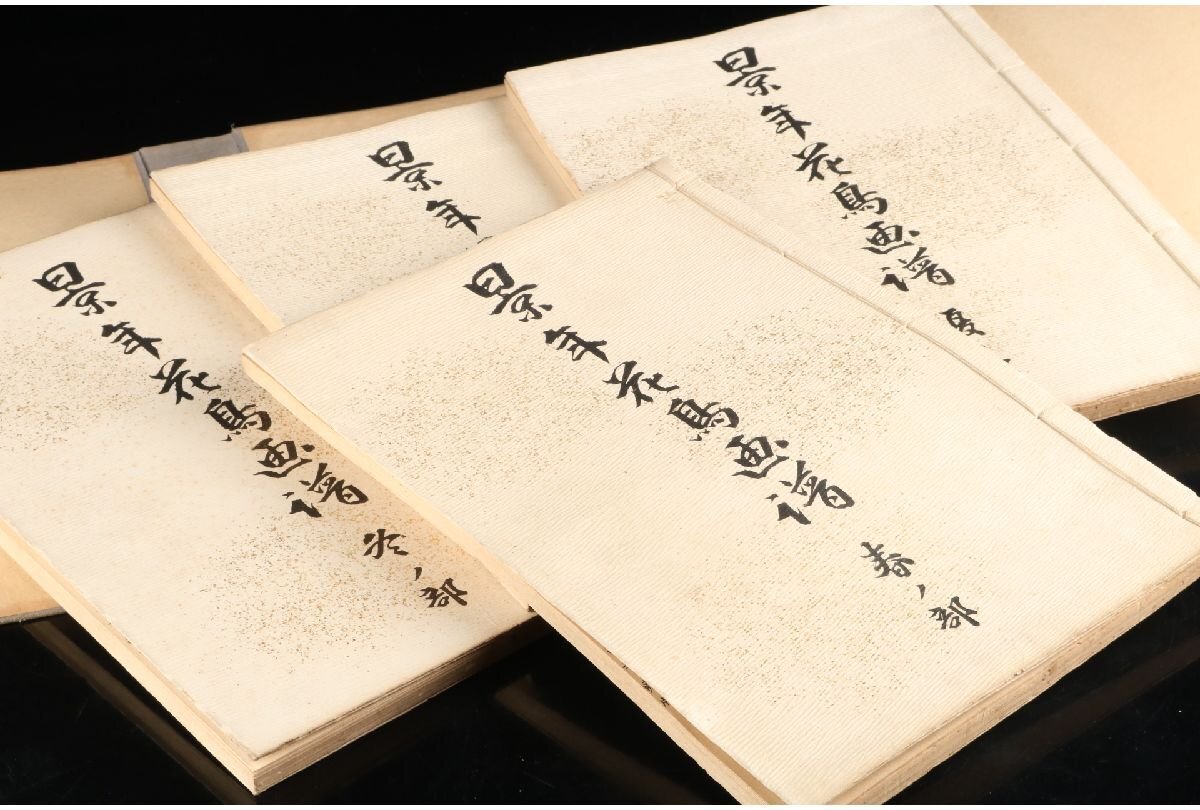 景年花鳥画譜 春ノ部
景年花鳥画譜 夏
景年
景年花鳥画譜 冬ノ部